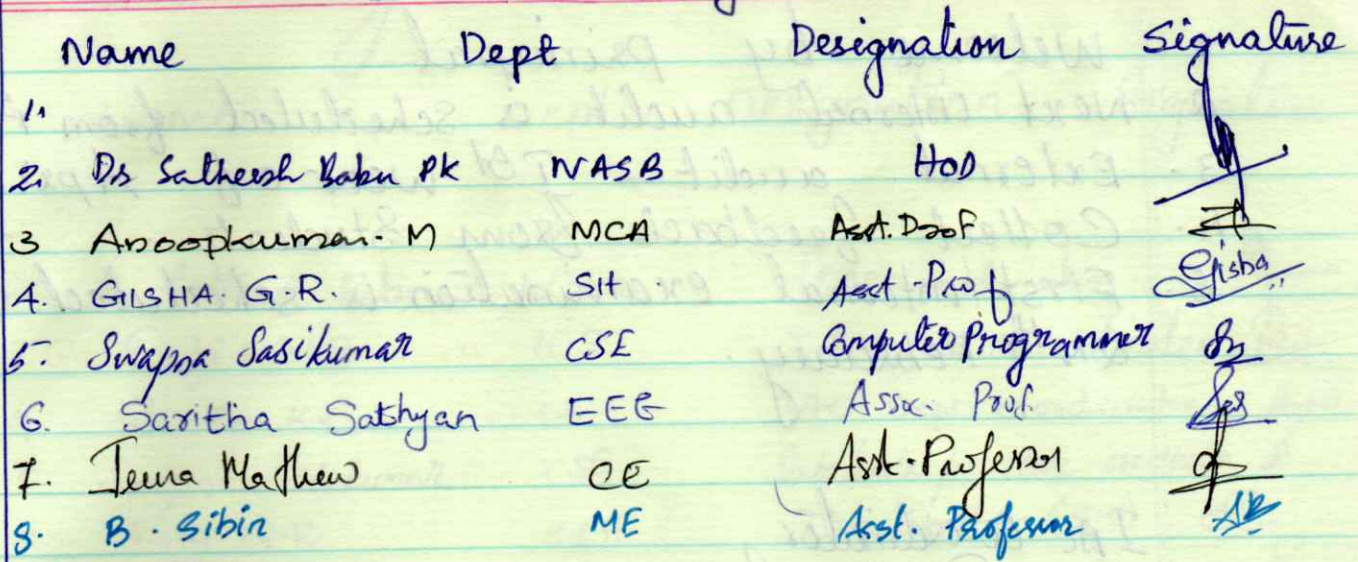 Name Dept Designation Signature
1.
2. Dr Satheesh Babu PK NASB HOD
3 Anoopkumar. M MCA Asst. Prof
4. GISHA. G.R. SH. Asst - Prof Gisha
5. Swapna Sasikumar CSE Computer Programmer
6. Saritha Sathyan EEE Assoc. Prof.
7. Mathew CE Asst. Professor
8. B. Sibin ME Asst. Professor